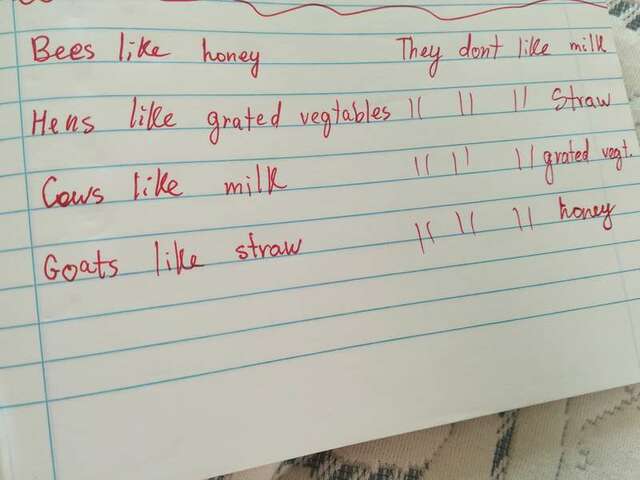 Bees like honey They dont like milk
Hens like grated vegtables " " " Straw
Cows like milk " " " grated vegt.
Goats like straw " " " honey